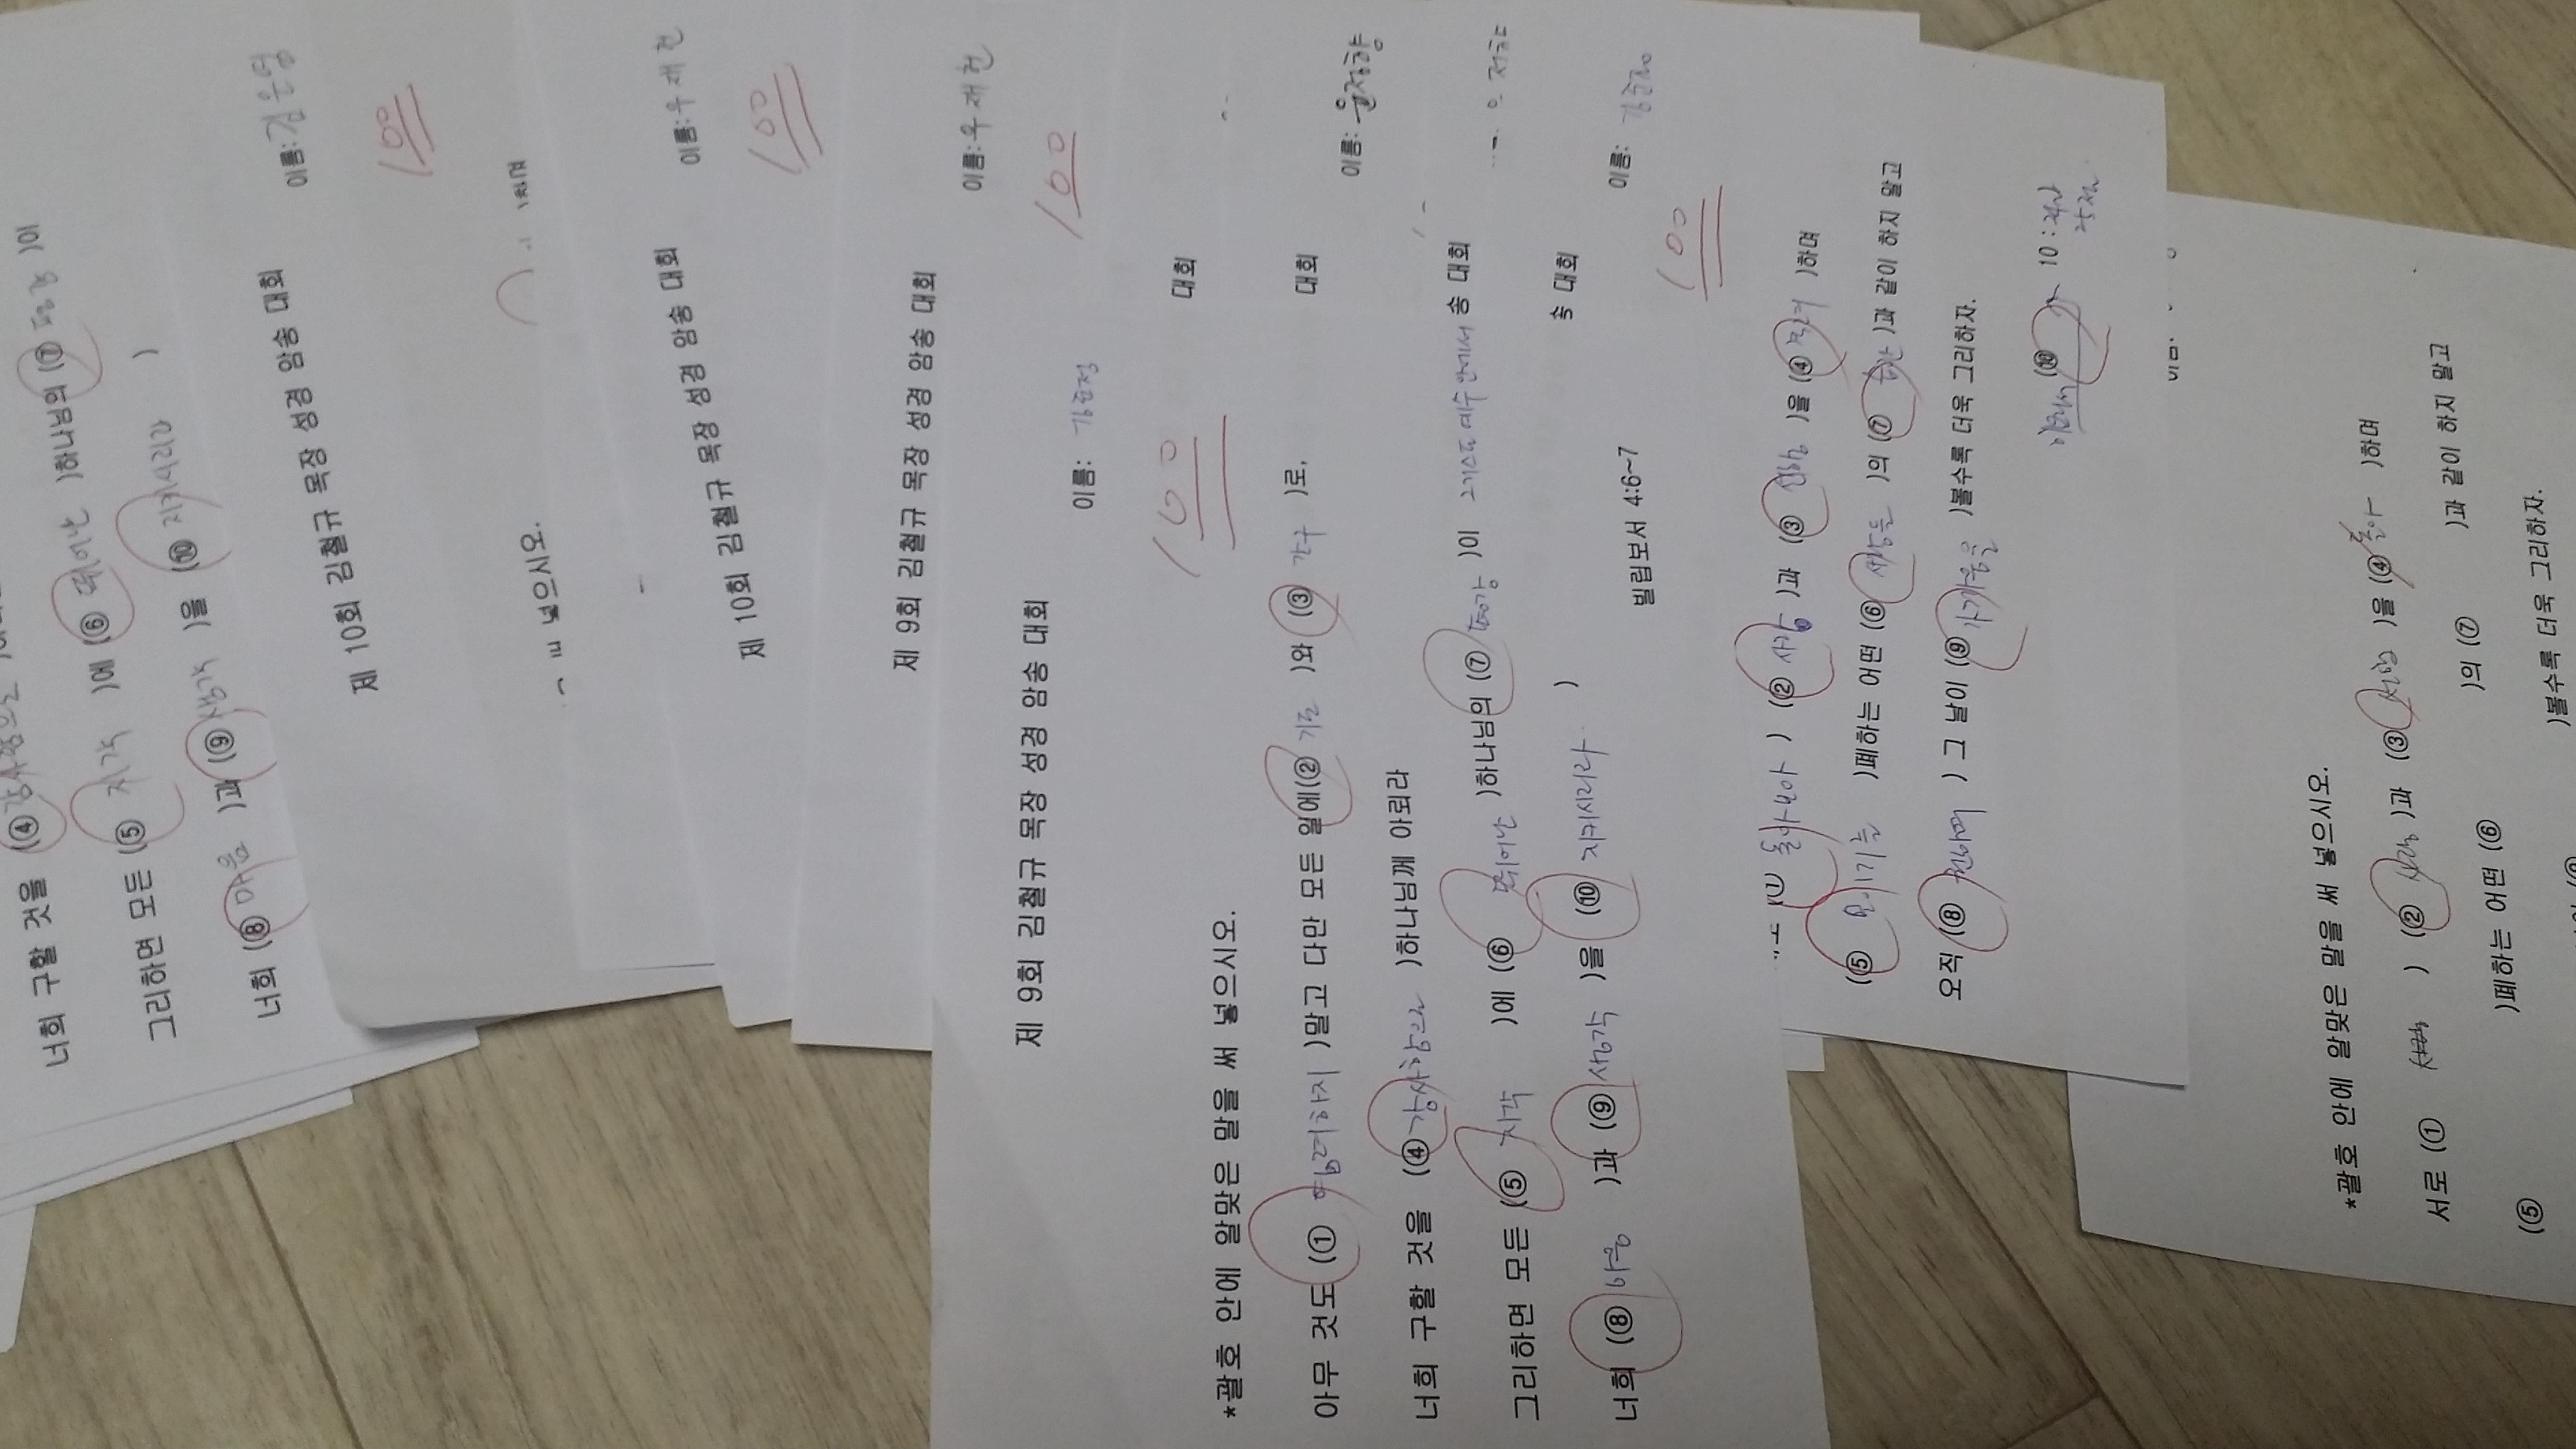 너희 구할 것을 (④감사함으로
그리하면 모든 (⑤ 지각 )에 (⑥ 뛰어난 )하나님의 (⑦ 평강 )이
너희 (⑧ 마음 )과 (⑨ 생각 )을 (⑩ 지키시리라 )
제 10회 김철규 목장 성경 암송 대회
이름: 김은영
100
넣으시오.
제 10회 김철규 목장 성경 암송 대회
이름: 우재현
100
제 9회 김철규 목장 성경 암송 대회
이름: 우재현
100
제 9회 김철규 목장 성경 암송 대회
이름: 김은정
100
*괄호 안에 알맞은 말을 써 넣으시오.
아무 것도 (① 염려하지 )말고 다만 모든 일에(② 기도 )와 (③ 간구 )로,
너희 구할 것을 (④ 감사함으로 )하나님께 아뢰라
그리하면 모든 (⑤ 지각 )에 (⑥ 뛰어난 )하나님의 (⑦ 평강 )이 그리스도 예수 안에서
너희 (⑧ 마음 )과 (⑨ 생각 )을 (⑩ 지키시리라. )
빌립보서 4:6~7
대회
대회
이름: 윤정향
송 대회
송 대회
이름:
100
돌아보아 ) (② 사랑 )과 (③ 선행 )을 (④ 격려 )하며
(⑤ 모이기를 )폐하는 어떤 (⑥ 사람들 )의 (⑦ 습관 )과 같이 하지 말고
오직 (⑧ 권하여 ) 그 날이 (⑨ 가까움을 )볼수록 더욱 그리하자.
히브리서 (⑩ 10:24
25
*괄호 안에 알맞은 말을 써 넣으시오.
서로 (① ) (② 사랑 )과 (③ 선행 )을 (④ 돌아 )하며
(⑤ )폐하는 어떤 (⑥ )의 (⑦ )과 같이 하지 말고
)볼수록 더욱 그리하자.